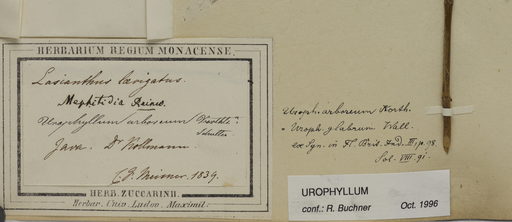 HERBARIUM REGIUM MONACENSE.
Lasianthus lævigatus.
Mephitidia Reinw.
Urophyllum arboreum
Java. Dr Kollmann.
1839.
HERB. ZUCCARINII.
Herbar. Univ. Ludov. Maximil.
Uroph. arboreum Korth.
= Uroph. glabrum Wall.
ex Syn. in Fl. Brit. Ind. III p. 98.
Sol. VIII. 91.
UROPHYLLUM
conf.: R. Buchner Oct. 1996